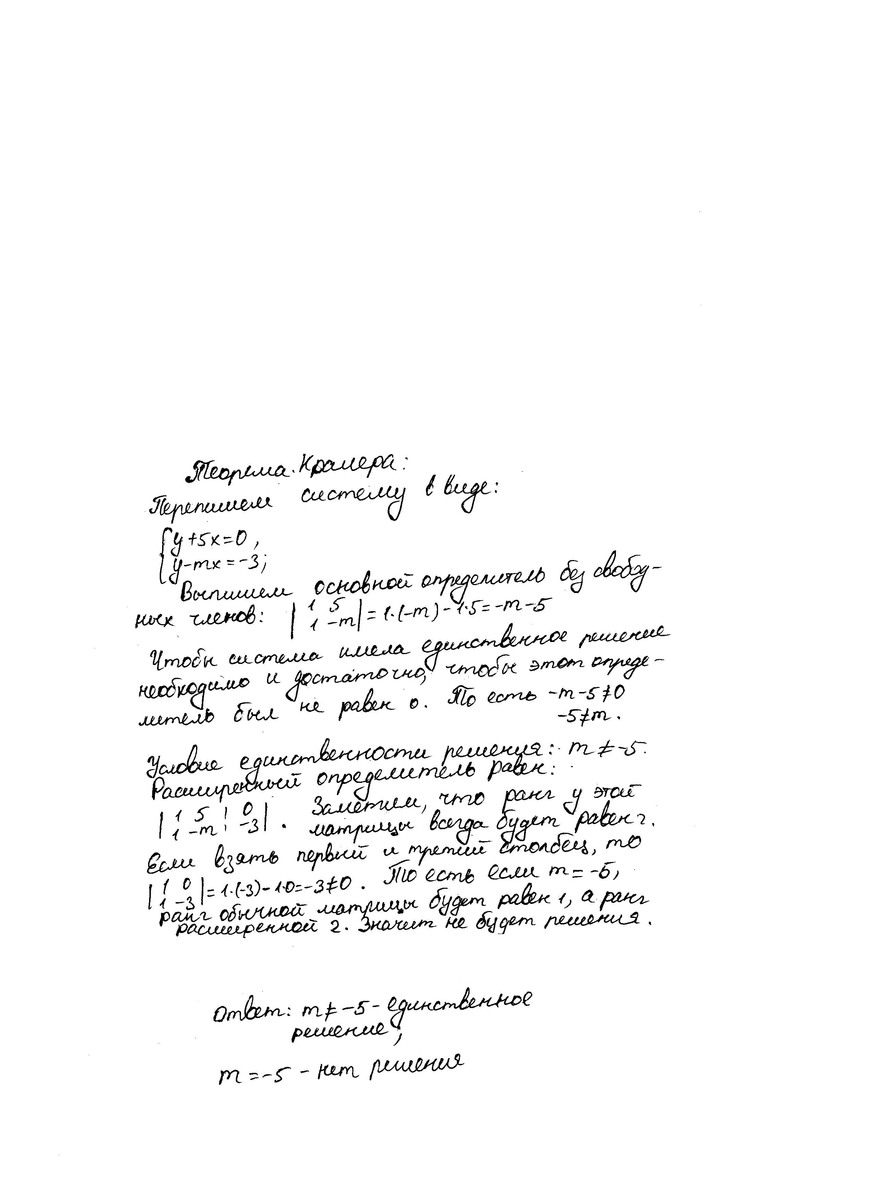 Теорема Крамера:
Перепишем систему в виде:
{y+5x=0,
{y-mx=-3;
Выпишем основной определитель без свобод-
ных членов: |1 5
1 -m| = 1·(-m)-1·5=-m-5
Чтобы система имела единственное решение
необходимо и достаточно, чтобы этот опреде-
литель был не равен 0. То есть -m-5≠0
-5≠m.
Условие единственности решения: m≠-5.
Расширенный определитель равен:
|1 5 ¦ 0
1 -m ¦ -3|. Заметим, что ранг у этой
матрицы всегда будет равен 2.
Если взять первый и третий столбец, то
|1 0
1 -3| = 1·(-3)-1·0=-3≠0. То есть если m=-5,
ранг обычной матрицы будет равен 1, а ранг
расширенной 2. Значит не будет решения.
Ответ: m≠-5 - единственное
решение;
m=-5 - нет решения